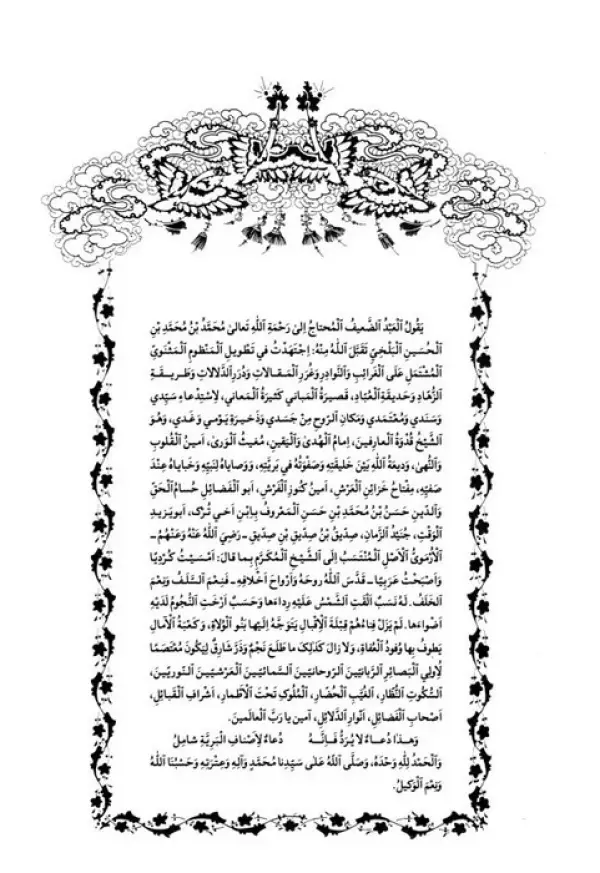 يَقُولُ ٱلْعَبْدُ ٱلضَّعِيفُ ٱلْمُحتاجُ إلىٰ رَحْمَةِ ٱللّٰهِ تَعالىٰ مُحَمَّدُ بْنُ مُحَمَّدِ بْنِ
ٱلْحُسَينِ ٱلْبَلْخِيِّ تَقَبَّلَ ٱللّٰهُ مِنْهُ: اِجْتَهَدْتُ في تَطْويلِ ٱلْمَنْظومِ ٱلْمَثْنَويِّ
ٱلْمُشْتَمِلِ عَلَى ٱلْغَرائِبِ وَٱلنَّوادِرِ وَغُرَرِ ٱلْمَقالاتِ وَدُرَرِ ٱلدَّلالاتِ وَطَريقَةِ
ٱلزُّهّادِ وَحَديقَةِ ٱلْعُبّادِ، قَصيرَةُ ٱلْمَباني كَثيرَةُ ٱلْمَعاني، لِاسْتِدْعاءِ سَيِّدي
وَسَنَدي وَمُعْتَمَدي وَمَكانِ ٱلرّوحِ مِنْ جَسَدي وَذَخيرَةِ يَوْمي وَغَدي، وَهُوَ
ٱلشَّيْخُ قُدْوَةُ ٱلْعارِفينَ، إمامُ ٱلْهُدىٰ وَٱلْيَقينِ، مُغيثُ ٱلْوَرىٰ، أمينُ ٱلْقُلوبِ
وَٱلنُّهىٰ، وَديعَةُ ٱللّٰهِ بَيْنَ خَليقَتِهِ وَصَفْوَتُهُ في بَرِيَّتِهِ، وَوَصاياهُ لِنَبِيِّهِ وَخَباياهُ عِنْدَ
صَفِيِّهِ، مِفْتاحُ خَزائِنِ ٱلْعَرْشِ، أمينُ كُنوزِ ٱلْفَرْشِ، أبو ٱلْفَضائِلِ حُسامُ ٱلْحَقِّ
وَٱلدّينِ حَسَنُ بْنُ مُحَمَّدِ بْنِ حَسَنِ ٱلْمَعْروفُ بِابْنِ أخي تُرْك، أبو يَزيدِ
ٱلْوَقْتِ، جُنَيْدُ ٱلزَّمانِ، صِدّيقُ بْنُ صِدّيقِ بْنِ صِدّيقِ ـ رَضِيَ ٱللّٰهُ عَنْهُ وَعَنْهُمْ ـ
ٱلْأرْمَوِيُّ ٱلْأصْلِ ٱلْمُنْتَسَبُ إلَى ٱلشَّيْخِ ٱلْمُكَرَّمِ بِما قالَ: أمْسَيْتُ كُرْدِيًّا
وَأصْبَحْتُ عَرَبِيًّا ـ قَدَّسَ ٱللّٰهُ روحَهُ وَأرْواحَ أخْلافِهِ ـ فَنِعْمَ ٱلسَّلَفُ وَنِعْمَ
ٱلْخَلَفُ. لَهُ نَسَبٌ ألْقَتِ ٱلشَّمْسُ عَلَيْهِ رِداءَها وَحَسَبٌ أرْخَتِ ٱلنُّجُومُ لَدَيْهِ
أضْواءَها. لَمْ يَزَلْ فِناءُهُمْ قِبْلَةَ ٱلْإقْبالِ يَتَوَجَّهُ إلَيْها بَنُو ٱلْوُلاةِ، وَكَعْبَةَ ٱلْآمالِ
يَطوفُ بِها وُفودُ ٱلْعُفاةِ، وَلا زالَ كَذٰلِكَ ما طَلَعَ نَجْمٌ وَذَرَّ شارِقٌ لِيَكُونَ مُعْتَصَمًا
لِأولِي ٱلْبَصائِرِ ٱلرَّبّانِيّينَ ٱلرّوحانِيّينَ ٱلسَّمائِيّينَ ٱلْعَرْشِيّينَ ٱلنّورِيّينَ،
ٱلسُّكُوتِ ٱلنُّظّارِ، ٱلْغُيَّبِ ٱلْحُضّارِ، ٱلْمُلُوكِ تَحْتَ ٱلْأطْمارِ، أشْرافِ ٱلْقَبائِلِ،
أصْحابِ ٱلْفَضائِلِ، أنْوارِ ٱلدَّلائِلِ، آمين يا رَبَّ ٱلْعالَمينَ.
وَهٰذا دُعاءٌ لا يُرَدُّ فَإنَّهُ دُعاءٌ لِأصْنافِ ٱلْبَرِيَّةِ شامِلُ
وَٱلْحَمْدُ لِلّٰهِ وَحْدَهُ، وَصَلَّى ٱللّٰهُ عَلىٰ سَيِّدِنا مُحَمَّدٍ وَآلِهِ وَعِتْرَتِهِ وَحَسْبُنَا ٱللّٰهُ
وَنِعْمَ ٱلْوَكيلُ.